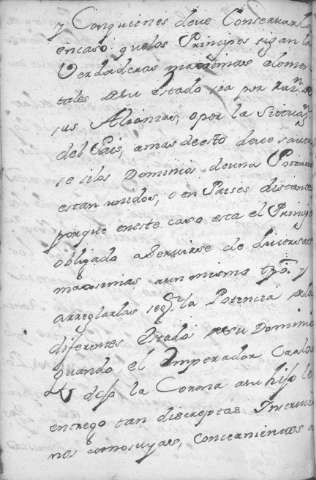 y Conquienes deve Conservarl
encaso q̃ los Principes sigan la
Verdaderas maximas elemen
tales de su Estado sea por Razⁿ de
sus Alianzas, o por la Situaz.ⁿ
del Pais, a mas de esto deve saver
se si los Dominios de una Potencia
estan unidos, o en Paises distantes
porque en este caso esta el Principe
obligado a servirse de diversas
maximas a un mismo tpõ. y
arreglarlas seg.ⁿ la Potencia de los
diferentes Estados de su Dominio
quando el Imperador Carlos
V. dejó la Corona a su hijo le
entrego tan discreptas Instruccio
nes como suyas, concernientes a